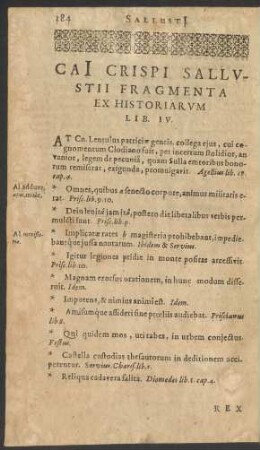 184 SALLUSTI
CAI CRISPI SALLV-
STII FRAGMENTA
EX HISTORIARVM
LIB. IV.
AT Cn. Lentulus patriciæ gentis, collega ejus, cui co-
gnomentum Clodiano fuit, per incertum stolidior, an
vanior, legem de pecunia, quam Sulla emtoribus bono-
rum remiserat, exigunda, promulgavit. Agellius lib. 18.
cap. 4.
* Omnes, quibus a senecto corpore, animus militaris e-
rat. Prisc. lib. 9. 10.
* Dein lenita jam ira, postero die liberalibus verbis per-
mulcti sunt. Prisc. lib. 9.
* Implicatæ rates magisteria prohibebant, impedie-
bantque jussa nautarum. Ibidem & Servius.
* Igitur legiones pridie in monte positas accessivit.
Prisc. lib. 10.
* Magnam exorsus orationem, in hunc modum disse-
ruit. Idem.
* Impotens, & nimius animi est. Idem.
* Amissumque assideri sine prœliis audiebat. Priscianus
lib. 8.
* Qui quidem mos, uti tabes, in urbem conjectus.
Festus.
* Castella custodias thesaurorum in deditionem acci-
perentur. Servius. Charis. lib. 1.
* Reliqua cadavera salita. Diomedes lib. 1. cap. 4.
REX